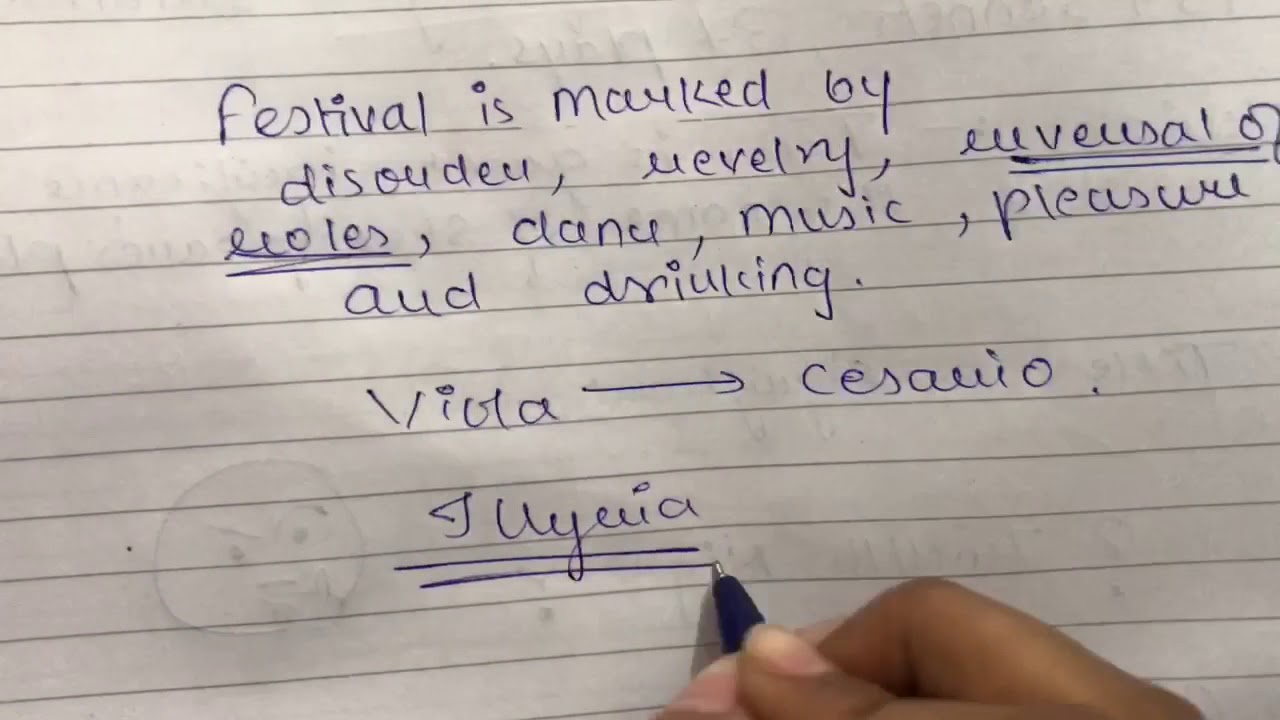 Festival is marked by
disorder, revelry, reversal of
roles, dance, music, pleasure
and drinking.
Viola → Cesario.
Illyria